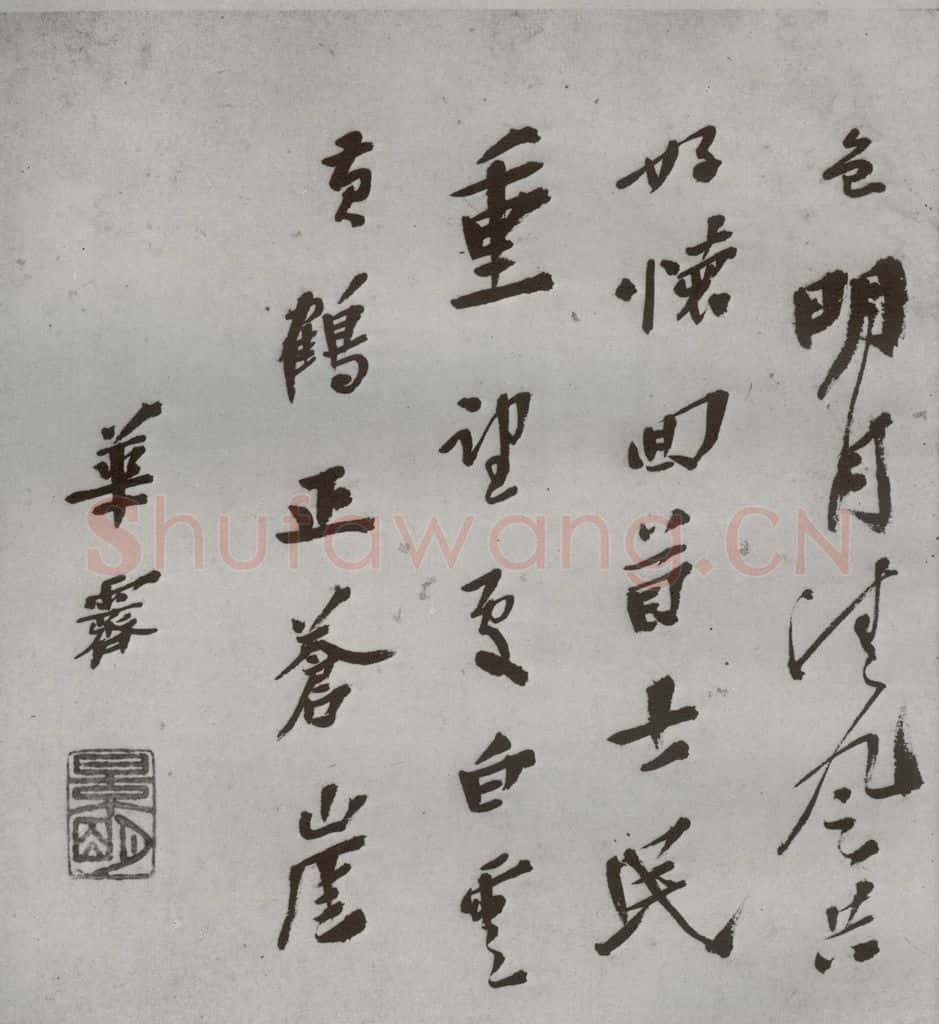 色明月清風共
好懷回首士民
重望更白雲
黃鶴正蒼崖
華霽
Shufawang.CN